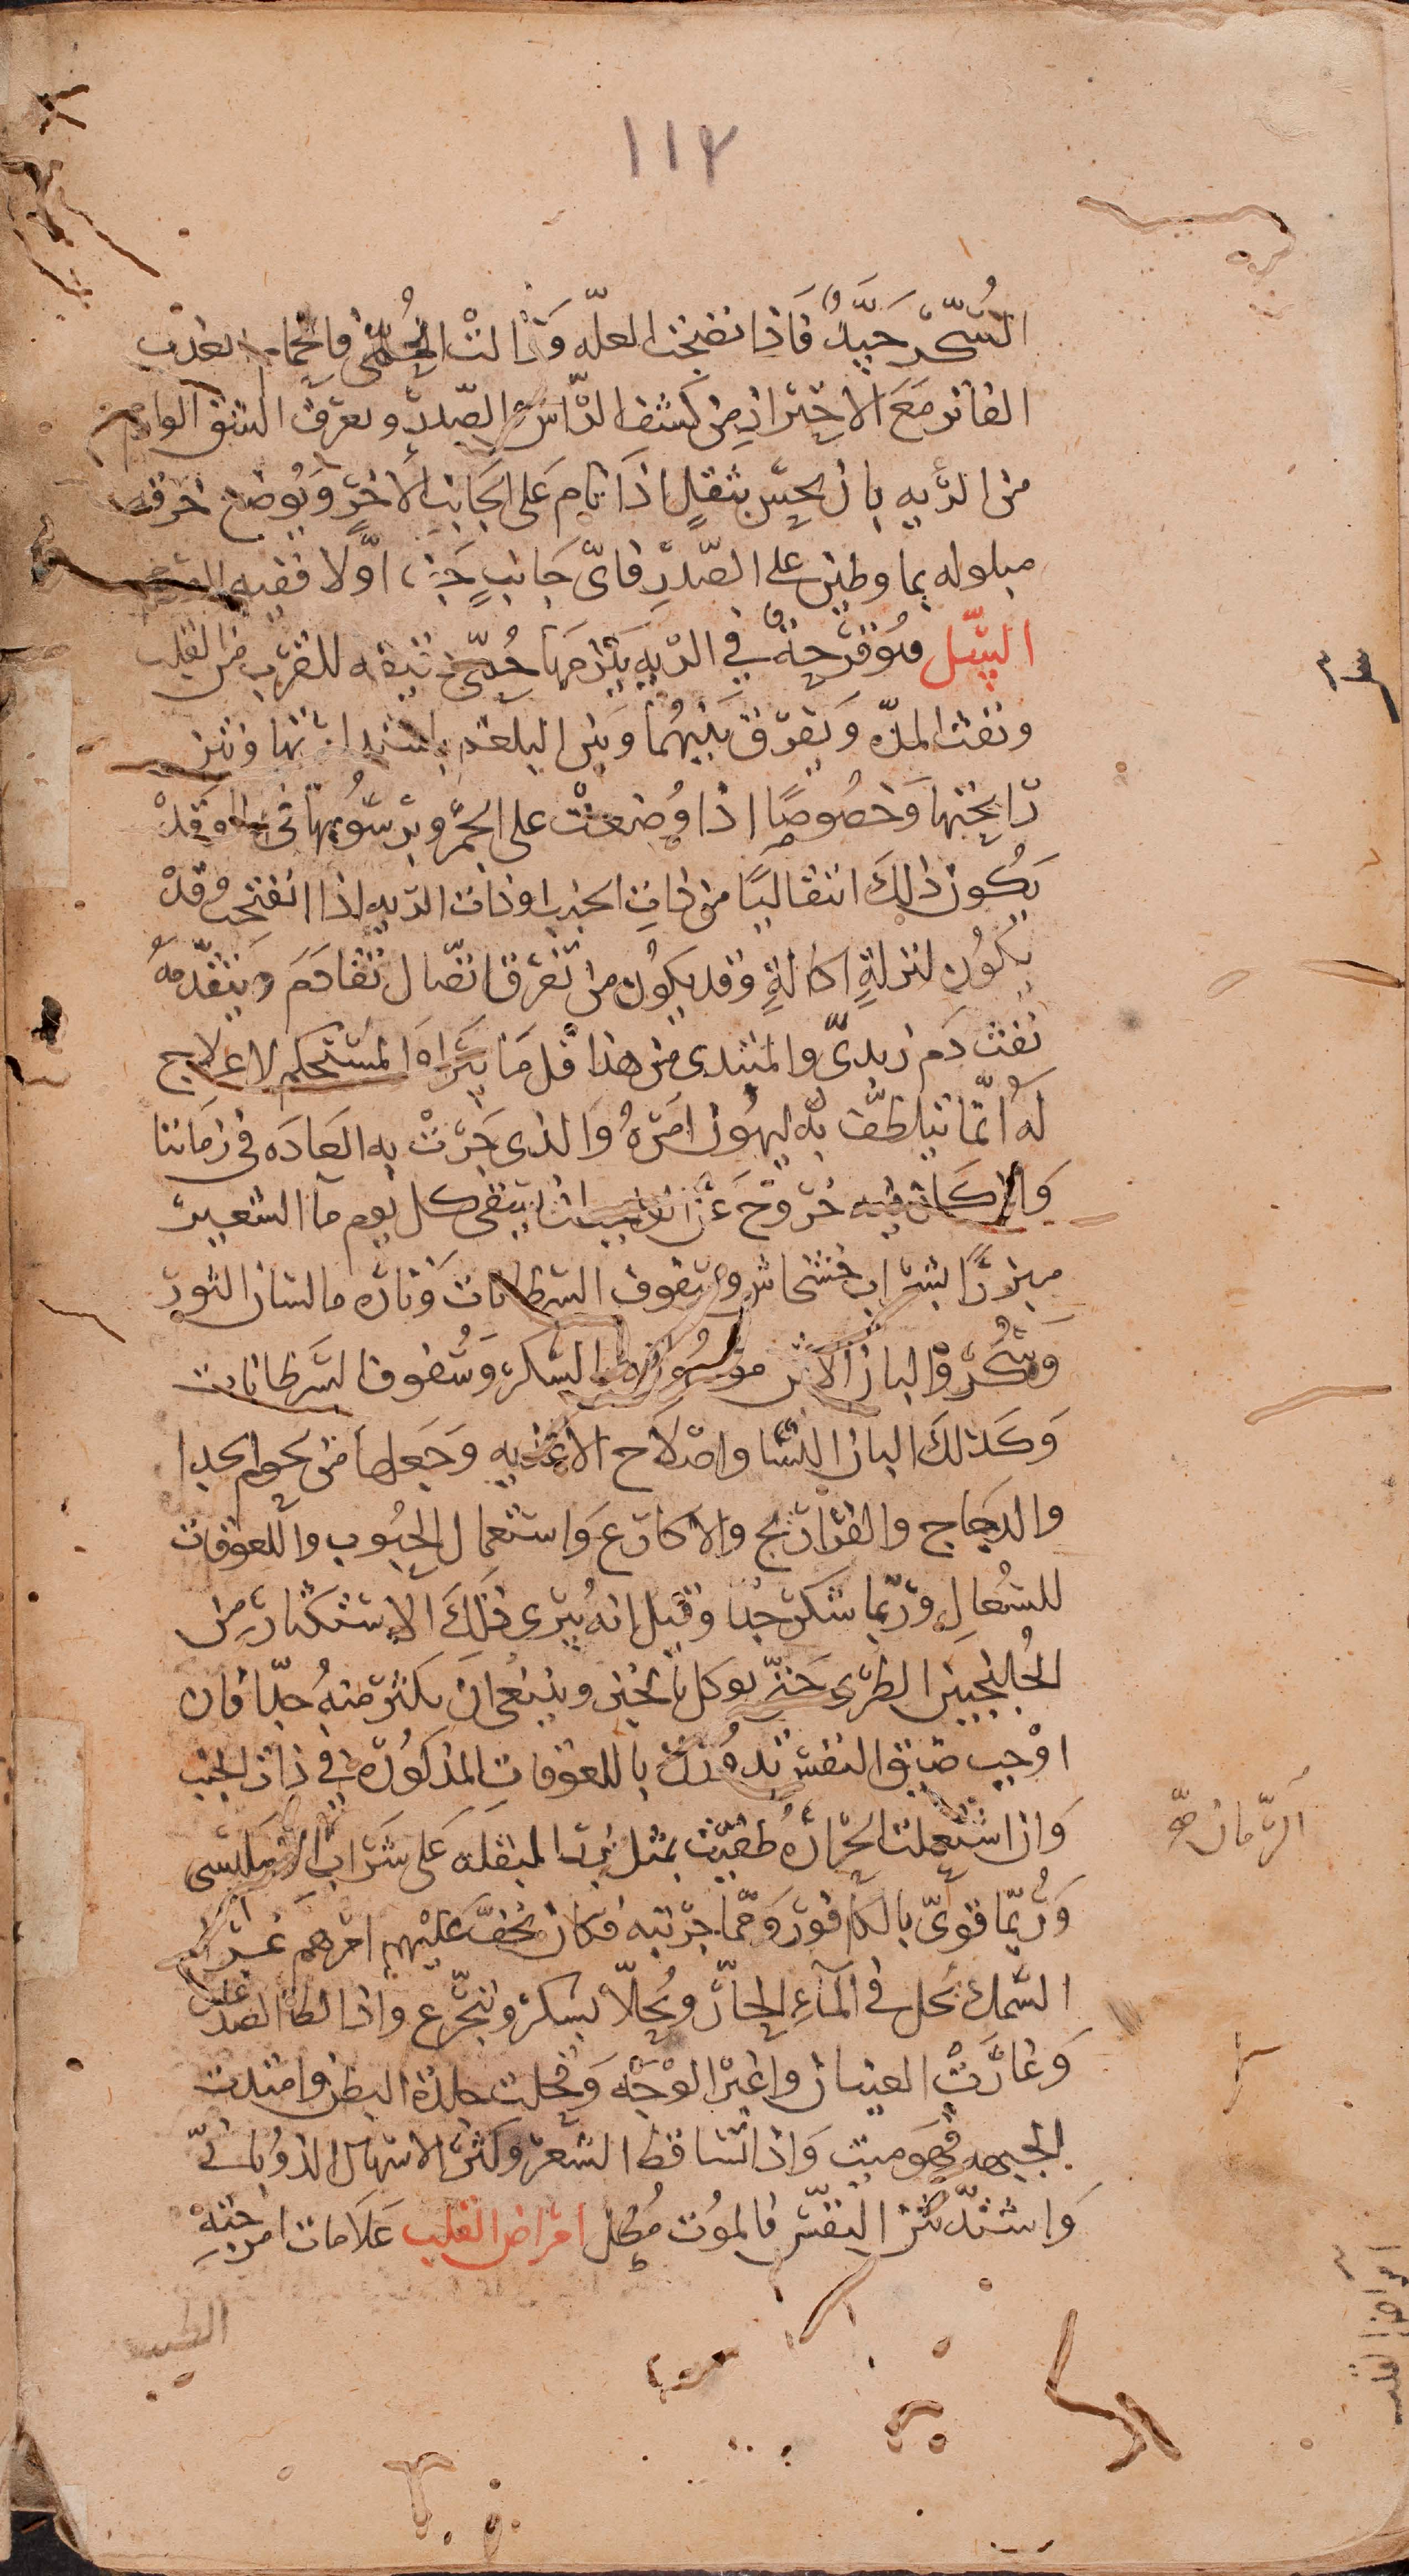 ١١٢
السُكّر جَيّدٌ فَاذا نضجت العلّه وَزالتْ الحُمّى فالحمام العذب
الفاتر مَعَ الاحتراز من كشف الرّاس والصّدر ويعرف الشق الوارم
من الريه بان يحسّ بثقلٍ اذا نام على الجانب الاخر وَيُوضع خرقه
مبلوله بما وطين على الصّدر فاىّ جَانبٍ جف اوّلا ففيه الورم
السّل هُو قرحةٌ في الريه يلزمهَا حُمّى دقيقه للقرب من القلب
ونفث المدّه وَيفرّق بَينهُما وَبين البلغم باستدارتها ونتن
رّايحتها وَخصُوصًا اذا وُضعتْ على الجمر وبرسُوبها فى الما وَقدْ
يَكُون ذلِكَ انتقاليًا من ذاتِ الجنب او ذات الريه اذا انفتحت وقدْ
يكُون لنزلةٍ اكالةٍ وقد يكوُن من تفرق اتّصال تقادَمَ ويتقدّمهُ
نفث دَم زبدىّ والمبتدى من هذا قَل مَا يبرَا وَالمستحكم لا علاج
لهُ انّما نتلطّف به ليهُون امَرهُ وَالذى جَرتْ به العَادَه فى زمَاننا
وَان كَان فيه خرُوج عَن الواجب ان يسقى كل يوم ما الشعير
مبزرًا بشراب خشخاش وسفوف السرطانات وَتاره ما لسان الثور
وَسُكّر والبان الاتن ممزُوجة بالسّكر وَسُفوف السَرطانات
وَكذلكَ البان النسا واصْلاح الاغذيه وَجَعلها من لحوم الجدا
والدجاج والفراريج والاكارع وَاستعمال الحبُوب واللعوقات
للسُعالِ ورُبما سَكرجدا وقيل انه يُبرى ذلكَ الاستكثار من
الجُلنجبين الطرى حَتى يوكل بالخبز وينبغى ان يكثر منهُ جدّا فان
اوْجب ضيق النفس تدُورك باللعوقاتِ المذكوُره في ذات الجنب
وَان اشتعلت الحرَارهُ طفيَت بمثل بزر البقله عَلى شَراب الامليسى
الرّمان صح
وَرُبّما قوىّ بالكافور وَممّا جرّبته فكان يخفّ عَليْهم امرهم غرى
السَّمك يُحل فى المآءِ الحارّ ويُحلّا بسكر ويتجّرع واذا لطا الصدغان
وَغارَتْ العينان واغبرّ الوْجَه وَقحلت جلدة البطن وامتدت
الجبهه فهوَ ميت وَاذا تساقط الشعر وكثر الاسهال الذوُبانىّ
وَاشتدّ نتن النفَس فالموُت مُطل امَراض القلب عَلامات امزجتهِ
الطب